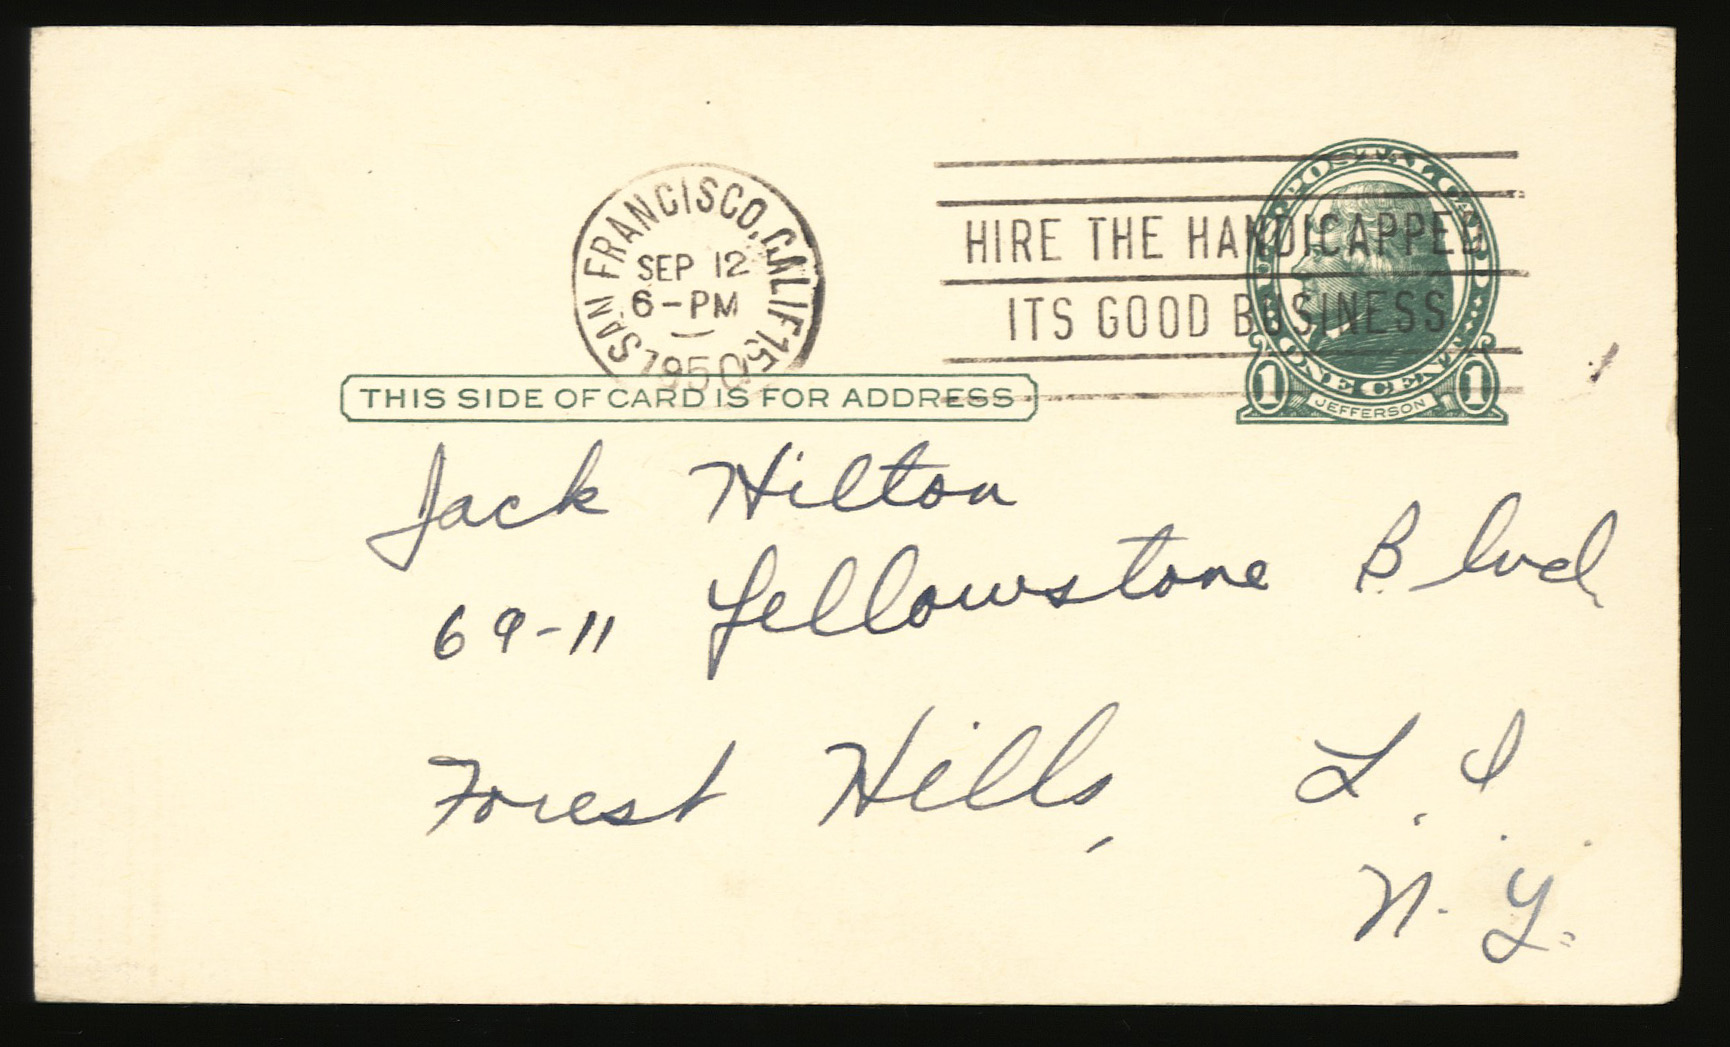 SAN FRANCISCO, CALIF. 15
SEP 12
6-PM
1950
HIRE THE HANDICAPPED
ITS GOOD BUSINESS
POSTAL CARD
ONE CENT
1 JEFFERSON 1
THIS SIDE OF CARD IS FOR ADDRESS
Jack Hilton
69-11 Yellowstone Blvd.
Forest Hills, L. I.
N. Y.